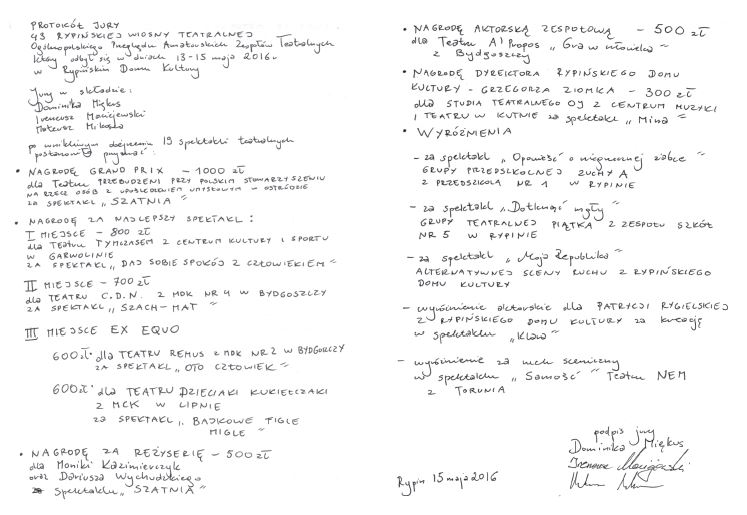 PROTOKÓŁ JURY
43 RYPIŃSKIEJ WIOSNY TEATRALNEJ
Ogólnopolskiego Przeglądu Amatorskich Zespołów Teatralnych
który odbył się w dniach 13-15 maja 2016r
w Rypińskim Domu Kultury
Jury w składzie:
Dominika Miękus
Ireneusz Maciejewski
Mateusz Mikosza
po wnikliwym obejrzeniu 19 spektakli teatralnych
postanowiło przyznać:
• NAGRODĘ GRAND PRIX - 1000 zł
dla Teatru PRZEBUDZENI PRZY POLSKIM STOWARZYSZENIU
NA RZECZ OSÓB Z UPOŚLEDZENIEM UMYSŁOWYM w OSTRÓDZIE
za SPEKTAKL "SZATNIA"
• NAGRODĘ ZA NAJLEPSZY SPEKTAKL:
I MIEJSCE - 800 zł
dla TEATRU TYMCZASEM Z CENTRUM KULTURY I SPORTU
W GARWOLINIE
ZA SPEKTAKL „DAJ SOBIE SPOKÓJ Z CZŁOWIEKIEM"
II MIEJSCE - 700 zł
dla TEATRU C.D.N. Z MDK NR 4 W BYDGOSZCZY
ZA SPEKTAKL „SZACH-MAT"
III MIEJSCE EX EQUO
600 zł • dla TEATRU REMUS Z MDK NR 2 W BYDGOSZCZY
ZA SPEKTAKL „OTO CZŁOWIEK"
600 zł • dla TEATRU DZIECIAKI KUKIEŁCZAKI
Z MCK W LIPNIE
za SPEKTAKL „BAJKOWE FIGLE
MIGLE"
• NAGRODĘ ZA REŻYSERIĘ - 500 zł
dla Moniki Kazimierczyk
oraz Dariusza Wychudzkiego
za Spektaklu „SZATNIA"
• NAGRODĘ AKTORSKĄ ZESPOŁOWĄ - 500 zł
dla Teatru A'Propos „Gra w człowieka"
z Bydgoszczy
• NAGRODĘ DYREKTORA RYPIŃSKIEGO DOMU
KULTURY - GRZEGORZA ZIOMKA - 300 zł
dla STUDIA TEATRALNEGO OJ Z CENTRUM MUZYKI
I TEATRU W KUTNIE za spektakl "Mina"
• WYRÓŻNIENIA
- za spektakl „Opowieść o niegrzecznej żabce"
GRUPY PRZEDSZKOLNEJ ZUCHY A
Z PRZEDSZKOLA NR 1 W RYPINIE
- za spektakl „Dotknąć mgły"
GRUPY TEATRALNEJ PIĄTKA Z ZESPOŁU SZKÓŁ
NR 5 W RYPINIE
- za spektakl „Moja Republika"
ALTERNATYWNEJ SCENY RUCHU Z RYPIŃSKIEGO
DOMU KULTURY
- wyróżnienie aktorskie dla PATRYCJI RYGIELSKIEJ
Z RYPIŃSKIEGO DOMU KULTURY za kreację
w spektaklu „Klara"
- wyróżnienie za ruch sceniczny
w spektaklu „Samość" Teatru NEM
z TORUNIA
podpis jury
Dominika Miękus
Ireneusz Maciejewski
Rypin 15 maja 2016